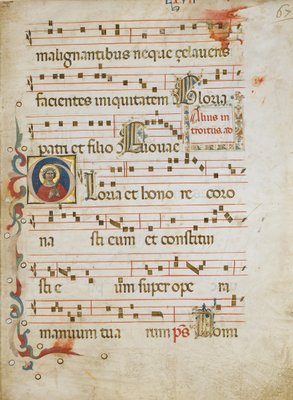 malignantibus neque çelaveris
facientes iniquitatem Gloria
Alius in
troitus. ad
patri et filio Euouae
Gloria et hono re coro
na sti eum et constitui
sti e um super ope ra
manuum tua rum ps Domi